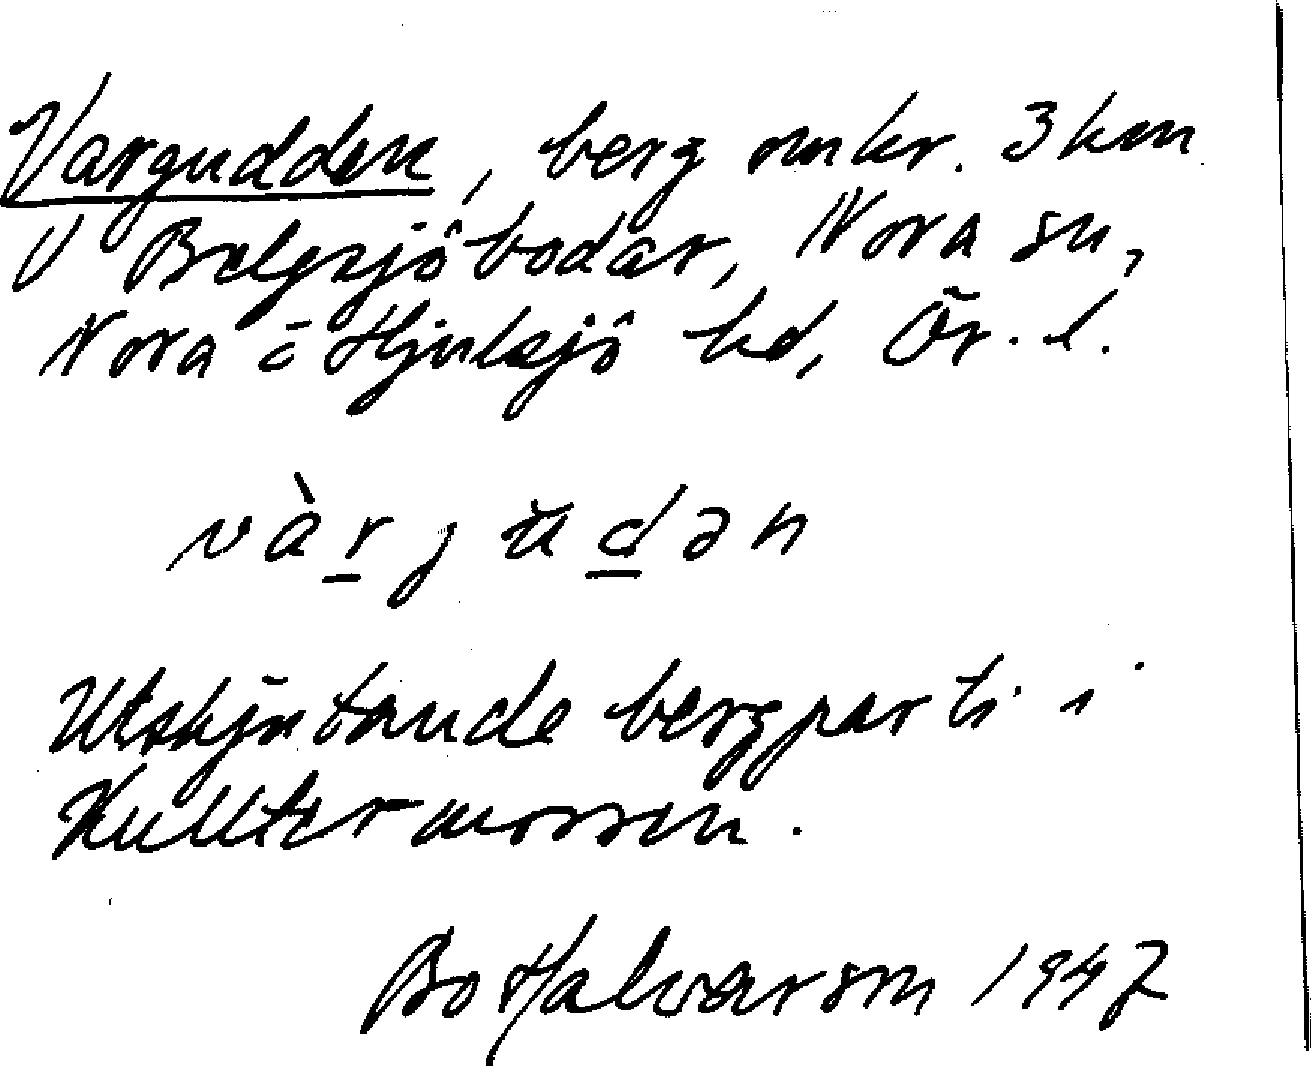 Vargudden, berg omkr. 3 km
V Bälgsjöbodar, Nora sn,
Nora o Hjulsjö hd, Ör. l.
vàrgŭdən
Utskjutande bergparti i
Kulltermossen.
Bo Halvarson 1947